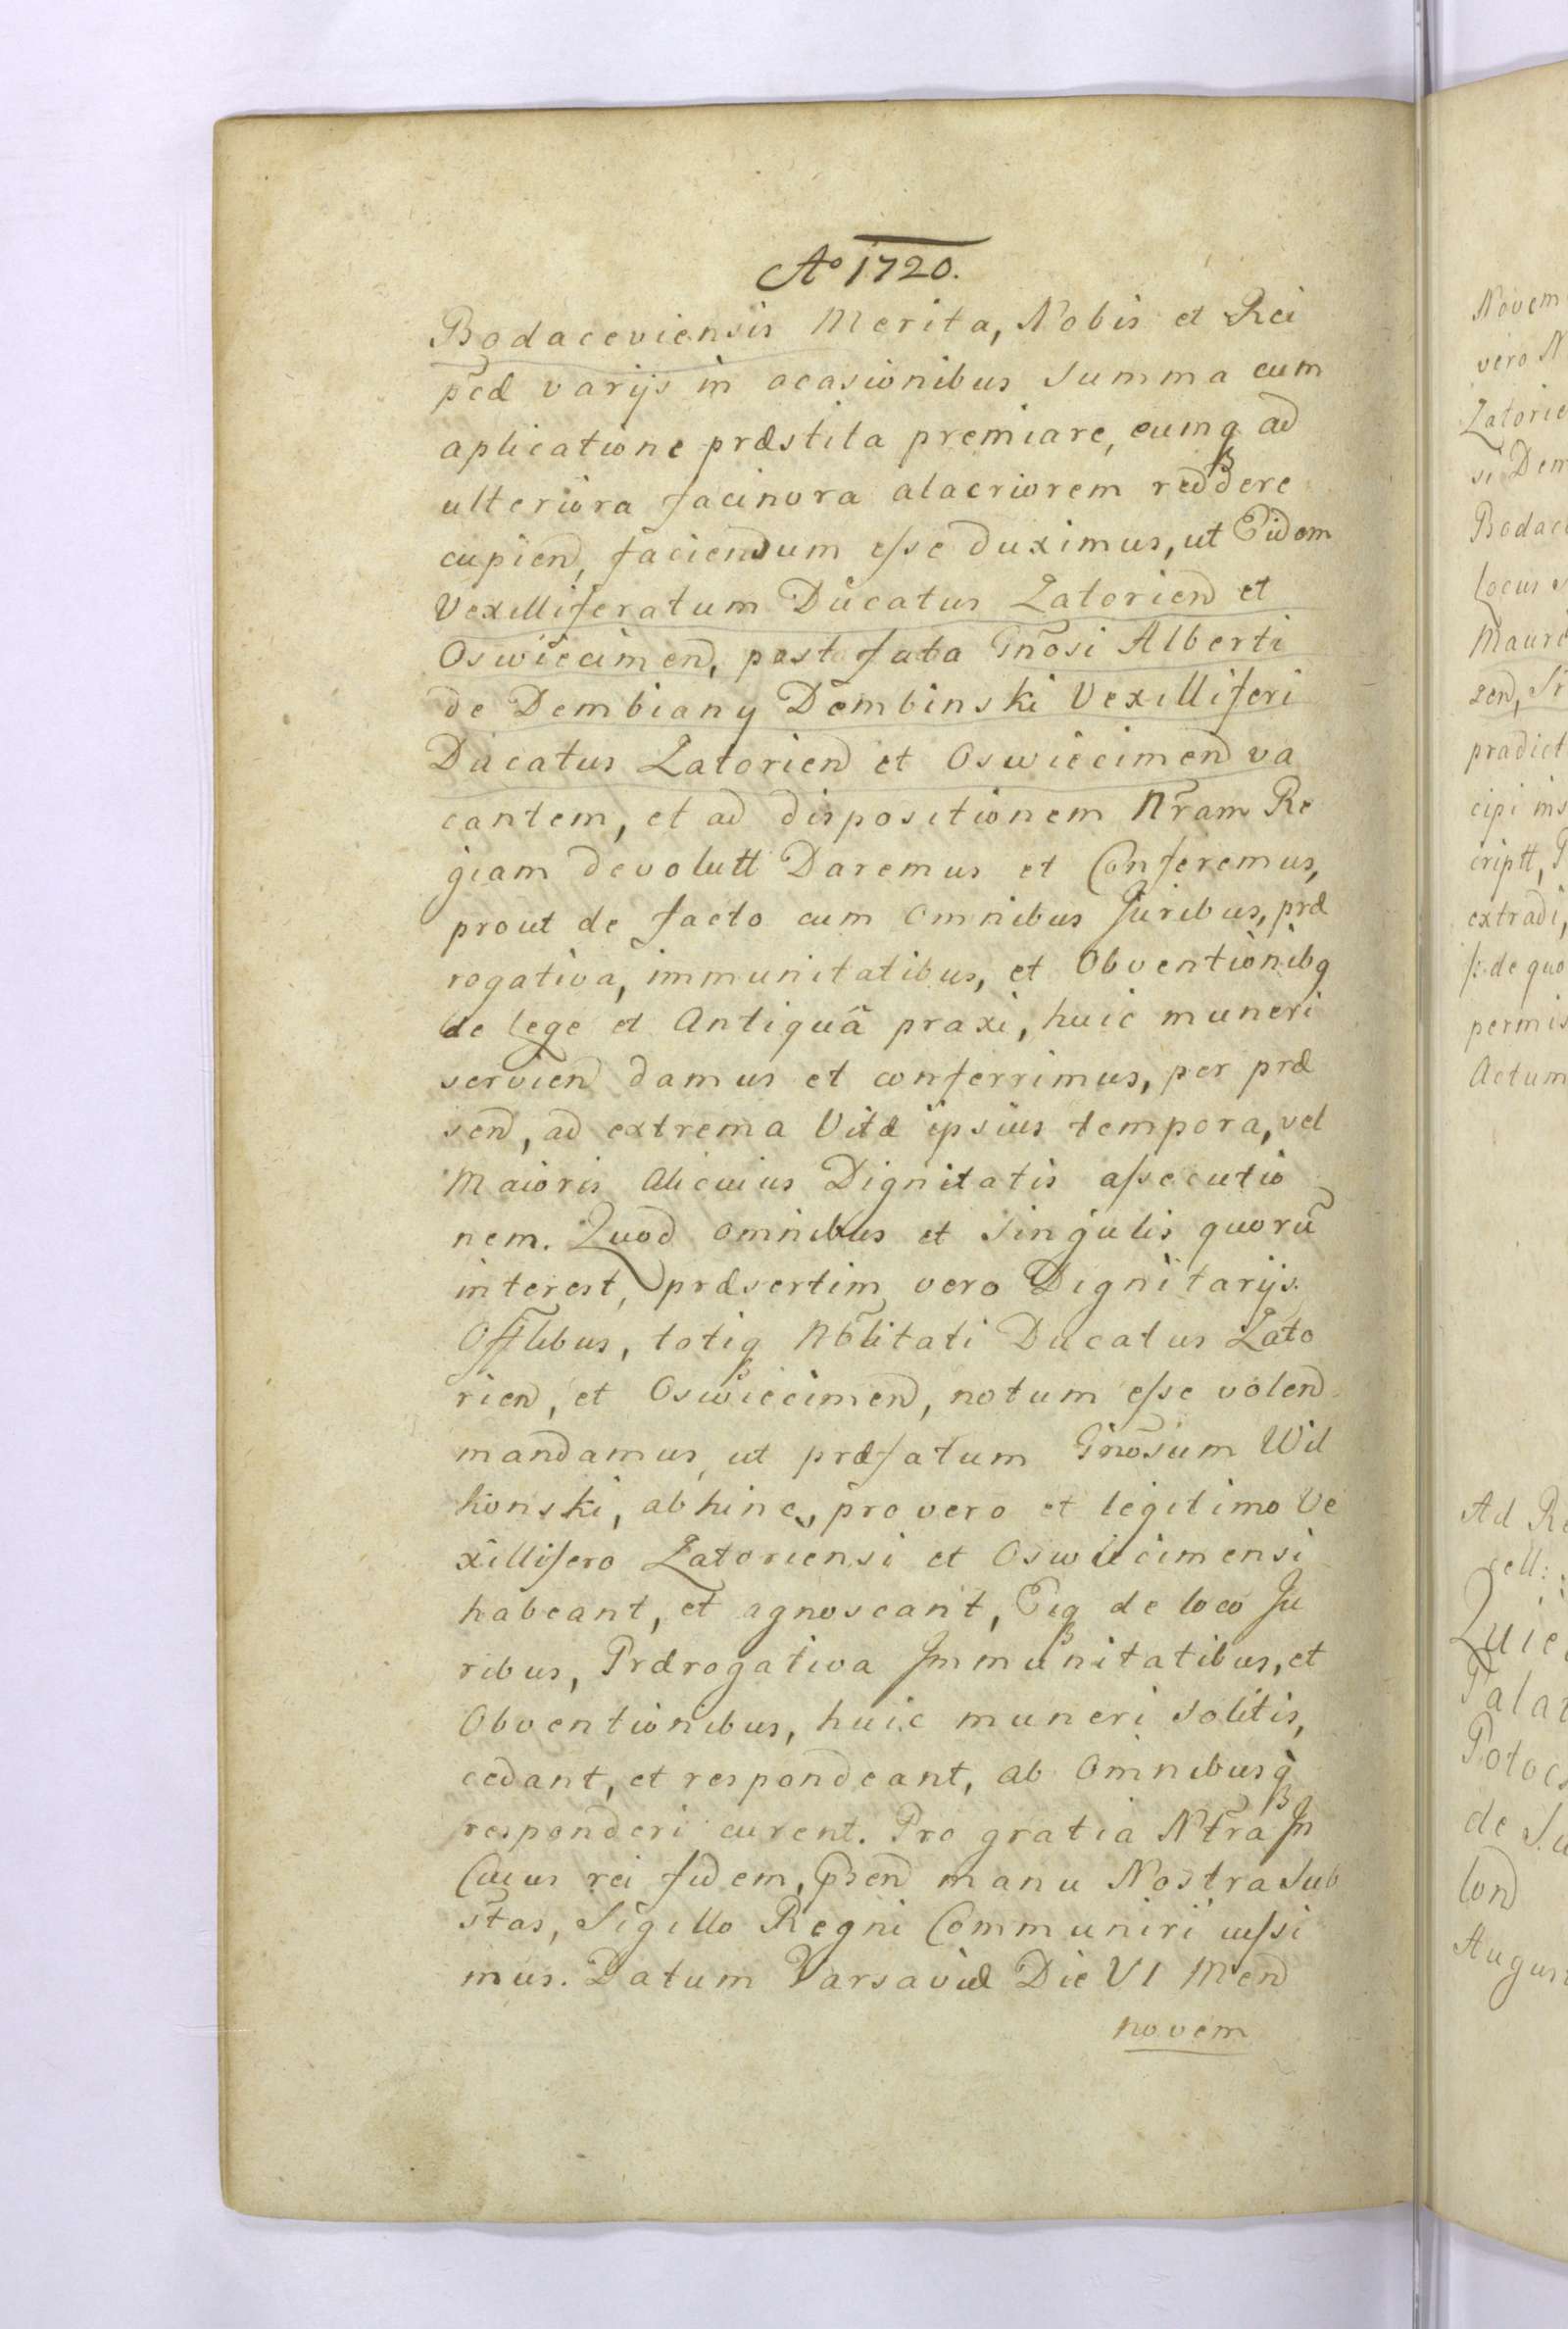 Aº 1720.
Bodaceviensis Merita, Nobis et Rei
pcæ varijs in ocasionibus Summa cum
aplicatione præstita premiare, eumq ad
ulteriora facinora alacriorem reddere
cupien, faciendum esse duximus, ut Eidem
Vexilliferatum Ducatus Zatorien et
Oswiecimen, post fata Gnosi Alberti
de Dembiany Dembinski Vexilliferi
Ducatus Zatorien et Oswiecimen va
cantem, et ad dispositionem Nram Re
giam devolutt Daremus et Conferemus,
prout de facto cum omnibus Juribus, præ
rogativa, immunitatibus, et Obventionibq
de lege et Antiquâ praxi, huic muneri
servien damus et conferrimus, per præ
sen, ad extrema Vitæ ipsius tempora, vel
Maioris alicuius Dignitatis assecutio
nem. Quod omnibus et singulis quorū
interest, præsertim vero Dignitarijs
Offlibus, totiq Nblitati Ducatus Zato
rien, et Oswiecimen, notum esse volen
mandamus, ut præfatum Gnosum Wil
konski, abhinc, pro vero et legitimo Ve
xillifero Zatoriensi et Oswiecimensi
habeant, et agnoscant, Eiq de loco Ju
ribus, Prærogativa Immunitatibus, et
Obventionibus, huic muneri solitis,
cedant, et respondeant, ab Omnibusq
responderi curent. Pro gratia Ntra In
Cuius rei fidem, psen manu Nostra Sub
stas, Sigillo Regni Communiri iussi
mus. Datum Varsaviæ Die VI Men
novem
Novem
vero N
Zatorie
si Dem
Bodac
Locus s
Maure
zen, Sr
prædict
cipi ins
criptt, P
extradi,
de quo
permis
Actum
Ad Re
cell:
Quie
Palat
Potocs
de Su
lon
Augus